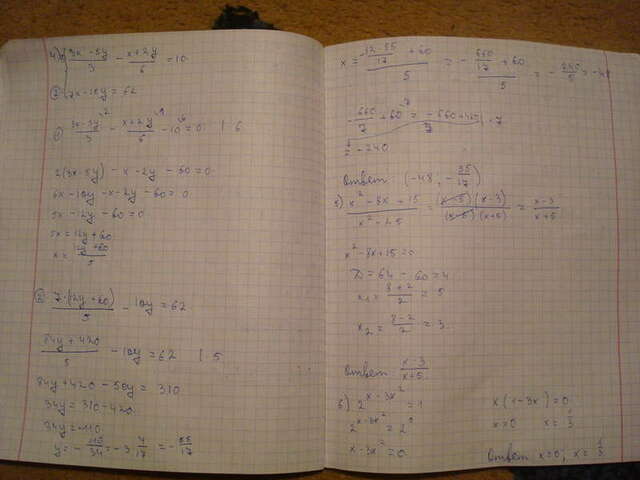 4) { (3x-5y)/3 - (x+2y)/6 = 10
② 7x-10y = 62
① (3x-5y)/3 - (x+2y)/6 - 10 = 0 | 6
2(3x-5y) - x - 2y - 60 = 0
6x - 10y - x - 2y - 60 = 0
5x - 12y - 60 = 0
5x = 12y + 60
x = (12y+60)/5
② 7·(12y+60)/5 - 10y = 62
(84y + 420)/5 - 10y = 62 | 5
84y + 420 - 50y = 310
34y = 310 - 420
34y = -110
y = -110/34 = -3 4/17 = -55/17
x = (12·55/17 + 60)/5 = -(660/17 + 60)/5 = -240/5 = -48
-240
Ответ: (-48, -55/17)
5) (x² - 8x + 15)/(x² - 25) = (x-5)(x-3)/(x-5)(x+5) = (x-3)/(x+5)
x² - 8x + 15 = 0
D = 64 - 60 = 4
x₁ = (8+2)/2 = 5
x₂ = (8-2)/2 = 3
Ответ (x-3)/(x+5)
6) 2^(x-3x²) = 1
2^(x-3x²) = 2⁰
x - 3x² = 0
x(1-3x) = 0
x = 0 x = 1/3
Ответ x = 0; x = 1/3